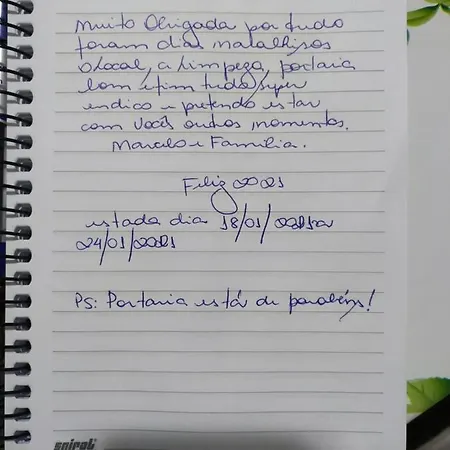 Muito Obrigada por tudo
foram dias maravilhosos
o local, a limpeza, portaria
bom e fim tudo super
indico e pretendo estar
com vocês outros momentos.
Marcelo e Familia.
Feliz 2021
estada dia 18/01/2021 a
24/01/2021
PS: Portaria está de parabéns!
spiral